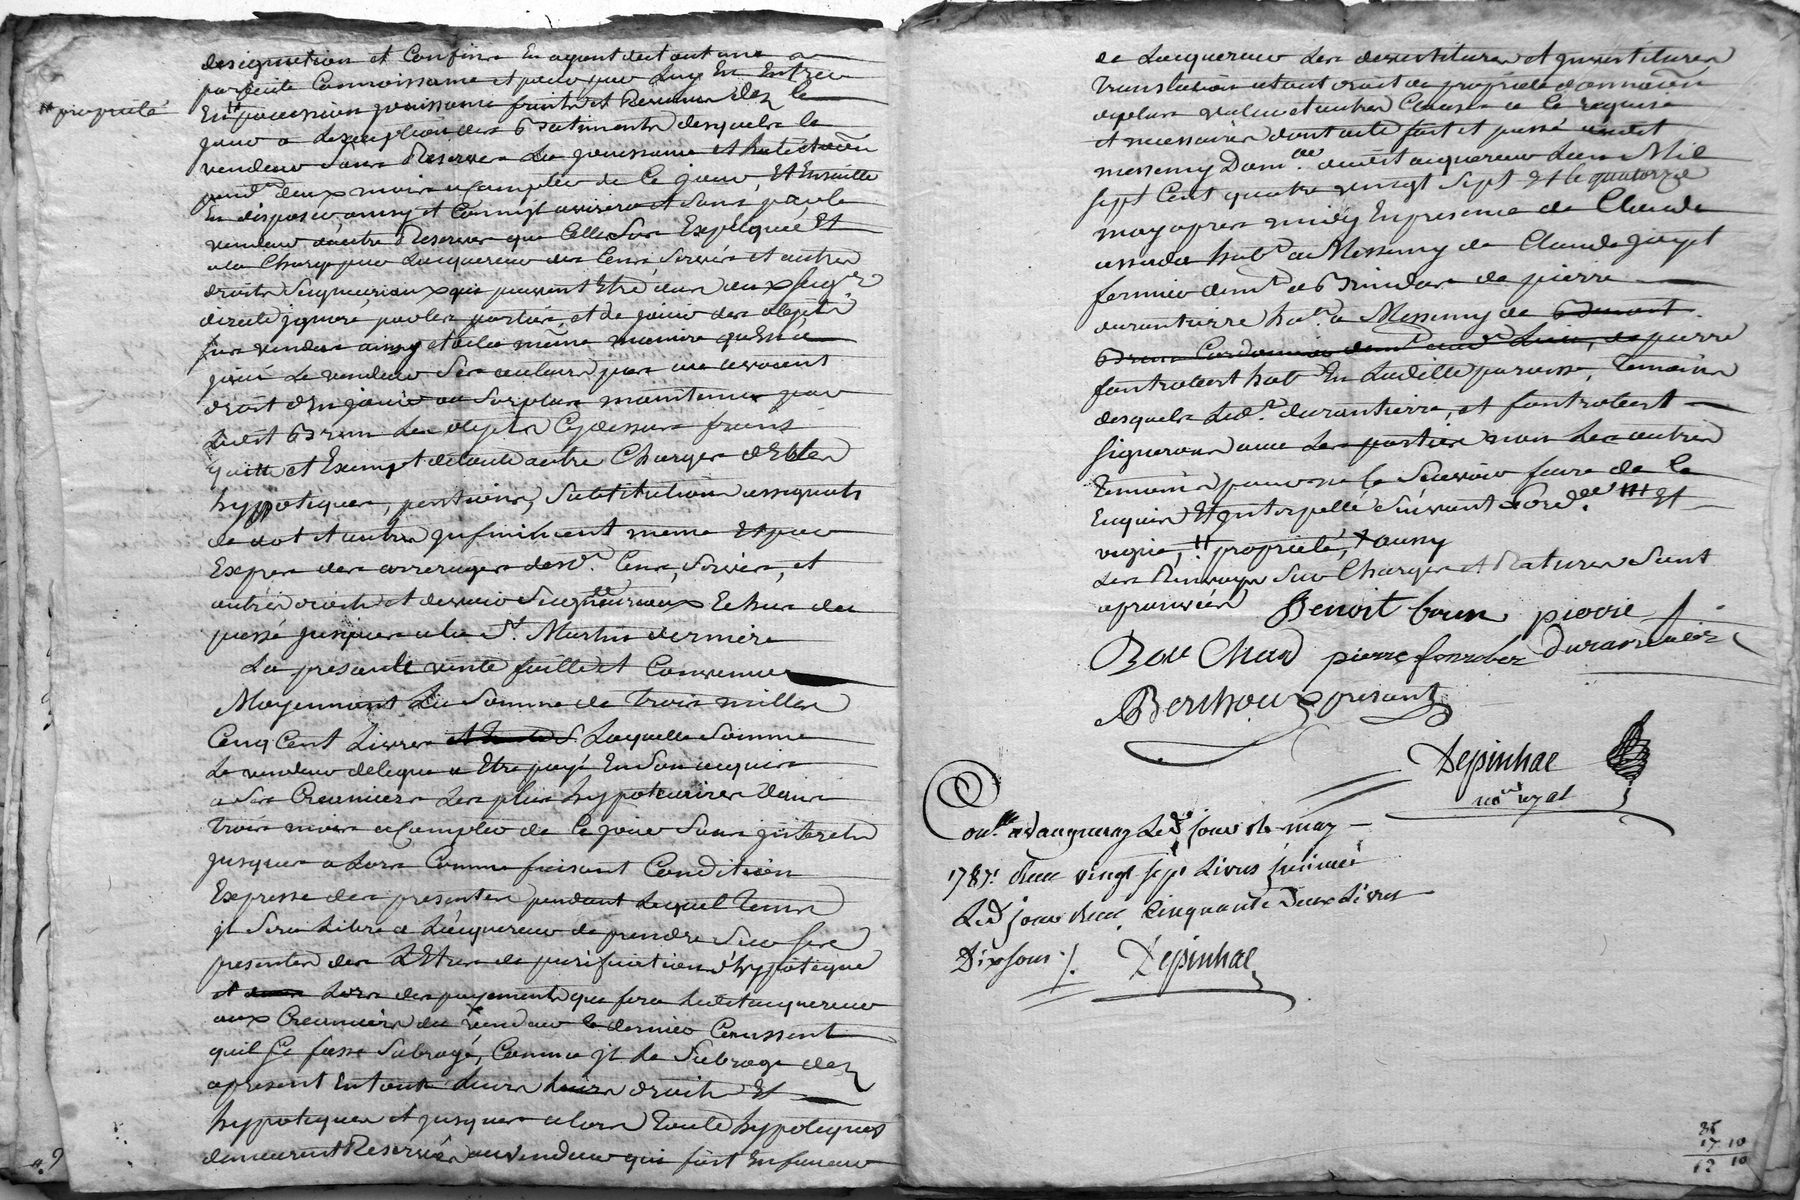 designation et Confins En ayant dit avoir une
parfaite Connoissance et pour par Luy En Entrer
** propriété
En ** possession jouissance fruits et Revenus dez ce
jour a Lexception des Batiments desquels le
vendeur Sans Reserve La jouissance et habitation
pend.t deux mois a Compter de Ce jour, Et Ensuitte
En disposer ainsy et Comm'il avisera et Sans par le
vendeur d'autre Reserve que Celle Sus Expliquée Et
a la Charge par Lacquereur des Cens, Servis et autres
droits Seigneuriaux qui peuvent Etre dus aux seig.rs
directs ignoré par les parties, et de jouir des objets
sus vendus ainsy et de la même maniere qu'En a
joüi Le vendeur Ses auteurs qu'ils avoient
droit d'En jouir au Surplus maintenus par
Ledit Brun Les objets Cydessus francs
quitte et Exempt de toute autre Charges dettes
hypoteques, pentions, Substitutions assignats
de dot et autres jnfiniment meme Et par
Exprés des arrerages desd. Cens, Servis, et
autres droits et devoirs Seigneuriaux Echus du
passé jusques a la St. Martin derniere
La presente vente faitte et Convenue
Moyennant La Somme de trois milles
Cinq Cent Livres Laquelle Somme
Le vendeur delegue a Etre payé En Son acquis
a Ses Creanciers Les plus hypotecaires dans
trois mois a Compter de Ce jour Sans jnterets
jusques a Lors Comme faisant Condition
Expresse des presentes pendant Lequel tems
jl Sera Libre a L'acquereur de prendre Sur Ses
presentes des Lettres de purification d'hypoteque
Lors des payements que fera Ledit acquereur
aux Creanciers du vendeur Ce dernier Consent
quil Se fasse Subrogé, Comme jl Le Subroge dez
apresent En tous Leurs droits Et
hypoteques et jusques alors toute hypoteques
demeurent Reservées au vendeur qui fait En faveur
de Lacquereur Les devestitures et jnvestitures
translation et tout droit de propriété donnation
de plus value et autres Clauses a Ce requises
et necessaires dont acte fait et passé audit
messimy Dom.le dudit acquereur Lan Mil
sept Cent quatre vingt Sept Et le quatorze
may apres midy En presence de Claude
hab.t a Messimy de Claude jayet
fermier dem.t a Brindas de pierre
duranterre hab.t a Messimy de Benoit
Brun Cordonnier dem.t aud. Lieu, de pierre
fontrobert hab.t En Ladille paroisse, temoins
desquels Led. durantierre, et fontrobert
Signeront avec Les parties non Les autres
temoins pour ne le Sçavoir faire de Ce
Enquis Et jnterpellé Suivant Lord.ce Et
vigne, ** propriété, + ausy
Les Renvoys Sur Charges et Ratures Sont
aprouvés Benoit brun pierre
Bouchard pierre fonrober duranticire
Berthoux presant
Depinhac
no.re royal
Con.lé a Vaugneray Le d. jour de may
1787. Reçu vingt sept Livres jnsinué
Led. jour Reçu Cinquante Deux Livres
Dix sous ./. Depinhac
35
17 10
52 10